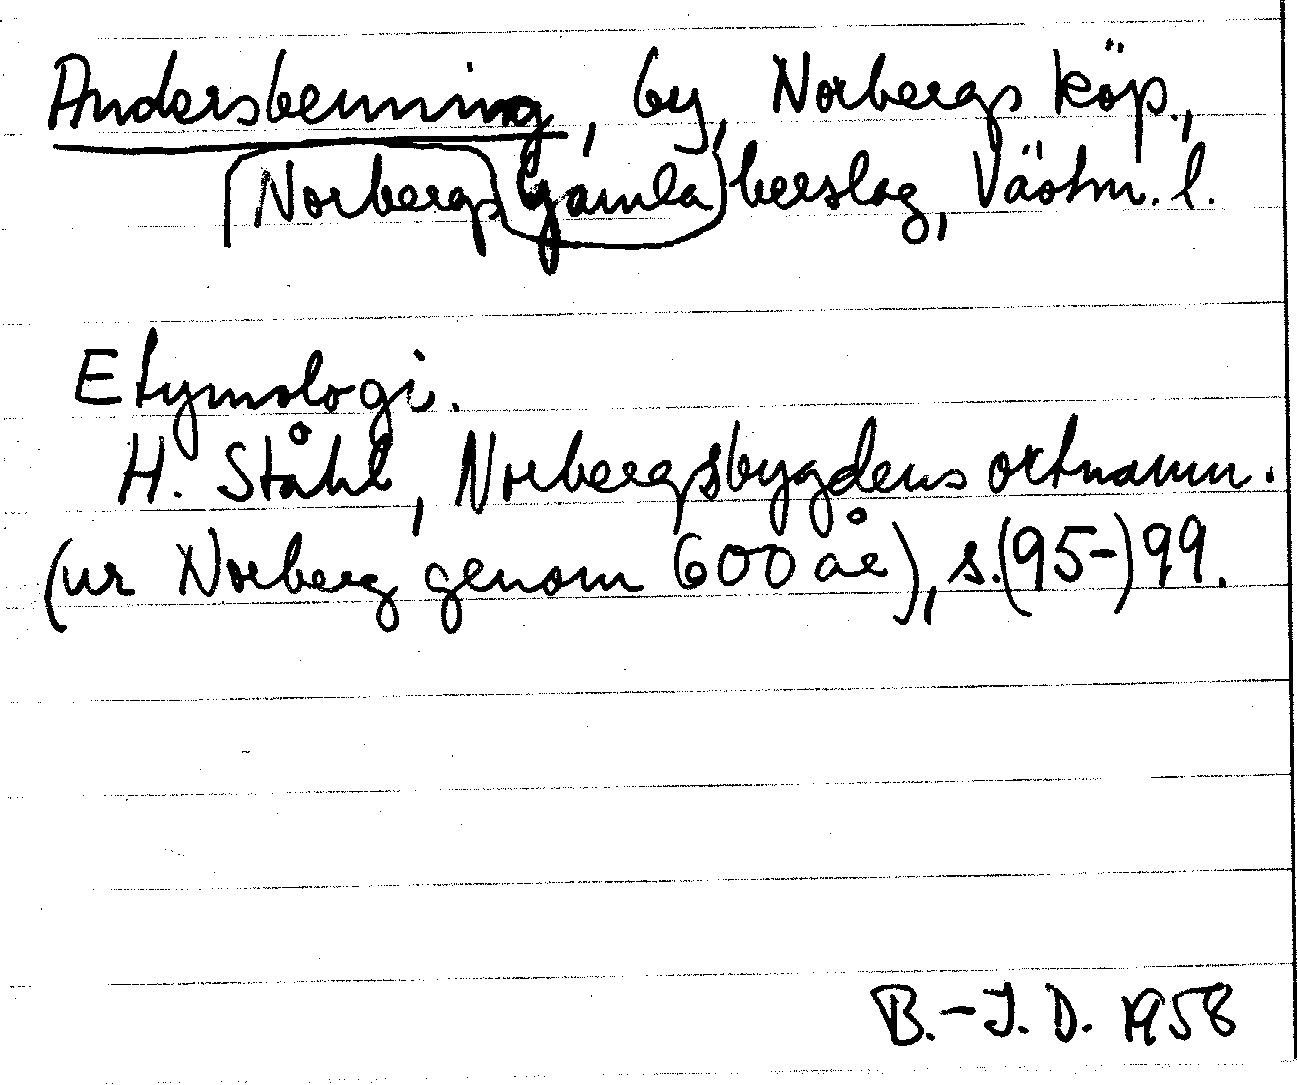 Andersbenning, by, Norbergs köp.,
Norbergs gamla bergslag, Västm. l.
Etymologi.
H. Ståhl, Norbergsbygdens ortnamn.
(ur Norberg genom 600 år), s. (95-) 99.
B.-J. D. 1958